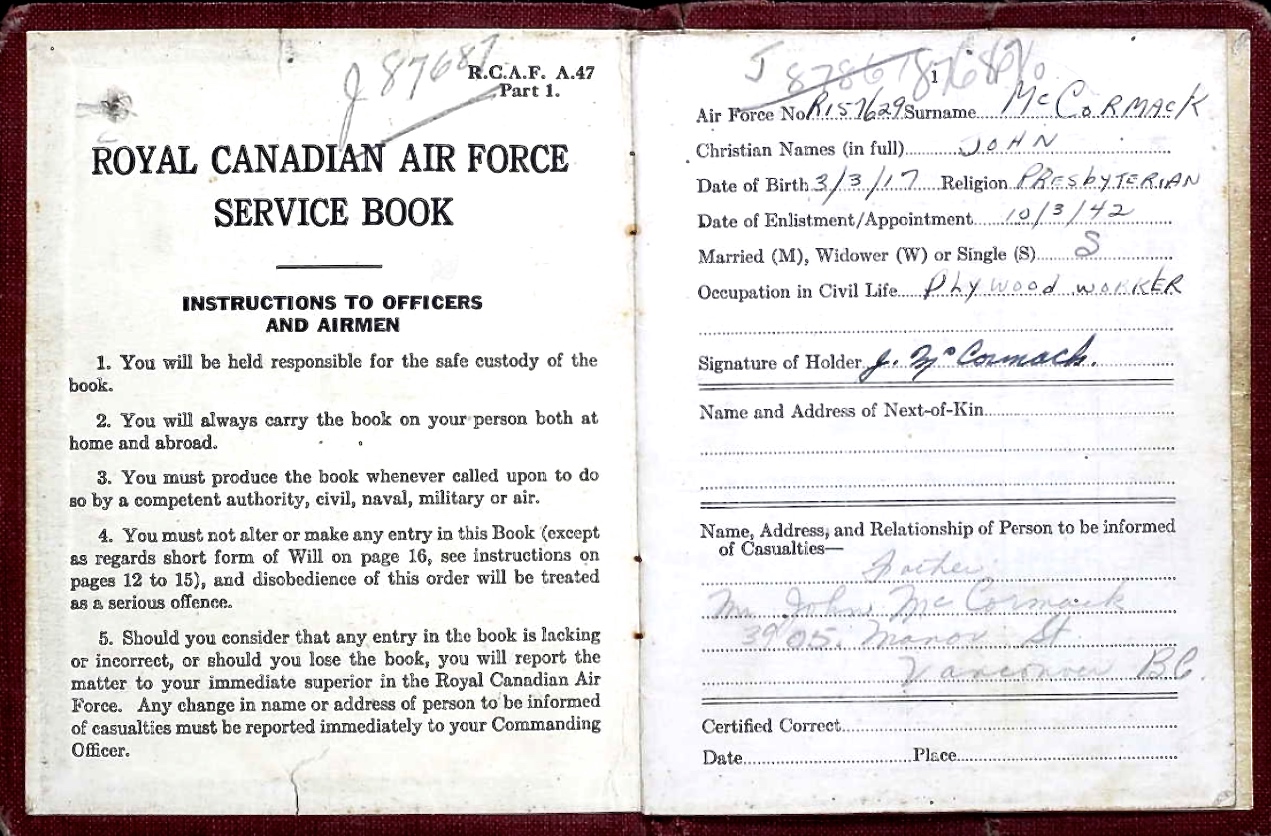 J 87687
R.C.A.F. A.47
Part 1.
ROYAL CANADIAN AIR FORCE
SERVICE BOOK
INSTRUCTIONS TO OFFICERS
AND AIRMEN
1. You will be held responsible for the safe custody of the
book.
2. You will always carry the book on your person both at
home and abroad.
3. You must produce the book whenever called upon to do
so by a competent authority, civil, naval, military or air.
4. You must not alter or make any entry in this Book (except
as regards short form of Will on page 16, see instructions on
pages 12 to 15), and disobedience of this order will be treated
as a serious offence.
5. Should you consider that any entry in the book is lacking
or incorrect, or should you lose the book, you will report the
matter to your immediate superior in the Royal Canadian Air
Force. Any change in name or address of person to be informed
of casualties must be reported immediately to your Commanding
Officer.
J
1
Air Force No R157629 Surname McCORMACK
Christian Names (in full) JOHN
Date of Birth 3/3/17 Religion PRESbyTERIAN
Date of Enlistment/Appointment 10/3/42
Married (M), Widower (W) or Single (S) S
Occupation in Civil Life PLYWOOd WORKER
Signature of Holder J. McCormack.
Name and Address of Next-of-Kin
Name, Address, and Relationship of Person to be informed
of Casualties—
Father
Mr John McCormack
3905 Manor St
Vancouver BC.
Certified Correct
Date Place